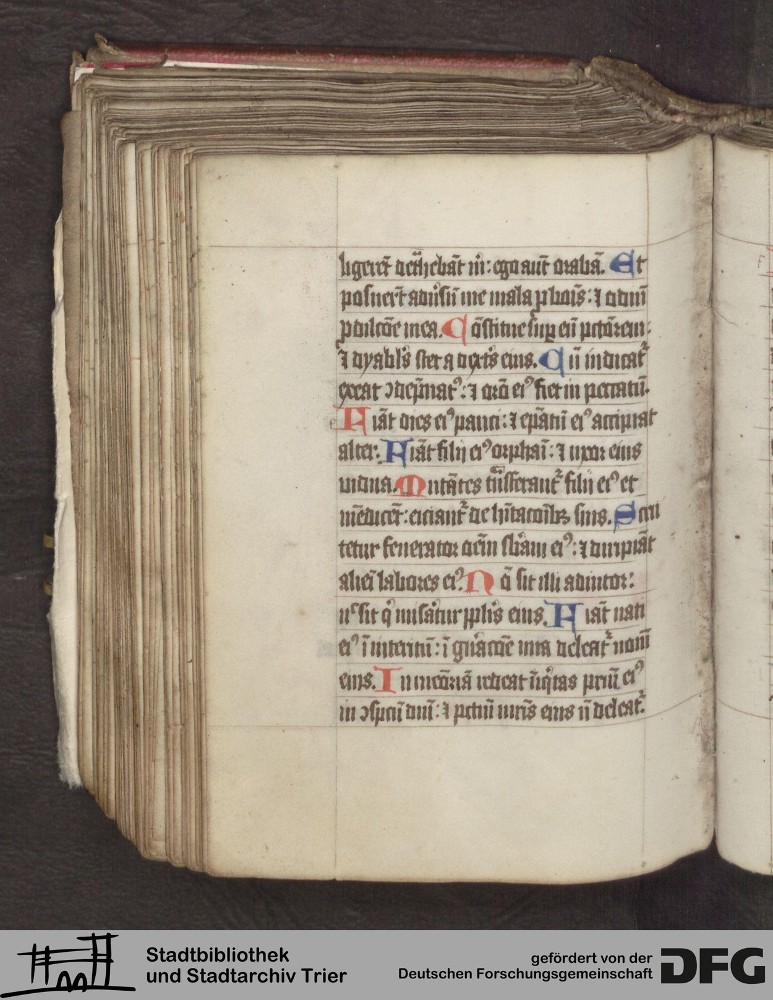 ligerēt det͛hebāt m̄: ego aut̄ orabā. Et
posuer̄t adūsū me mala ꝓ bois: ⁊ odiū
ꝓ dilc̄oe mea. Cōstitue suꝑ eū pctōrem:
⁊ dyabls stet a dextis eius. Cū iudicat᷑
exeat ↄdēpnatꝰ: ⁊ orō eiꝰ fiet in peccatū.
Fiāt dies eiꝰ pauci: ⁊ ep̄atū eiꝰ accipiat
alter. Fiāt filij eiꝰ orphāi: ⁊ uxor eius
uidua. Nutātes tūsferant᷑ filii eiꝰ et
mēdicēt: eiciant᷑ de hītacōibꝫ suis. Scru
tetur fenerator oēm sbāam eiꝰ: ⁊ diripiāt
aliei labores eiꝰ. Nō sit illi adiutor:
n̄ sit q̄ misāetur ppl̄is eius. Fiāt nati
eiꝰ ī interitū: ī gn̄acōe una deleat᷑ nom̄
eius. In memōiā redeat īiq̄tas pr̄iū eiꝰ
in ↄspc̄ū dn̄i: ⁊ pctm̄ mr̄is eius n̄ deleat᷑.
Stadtbibliothek
und Stadtarchiv Trier
gefördert von der
Deutschen Forschungsgemeinschaft
DFG